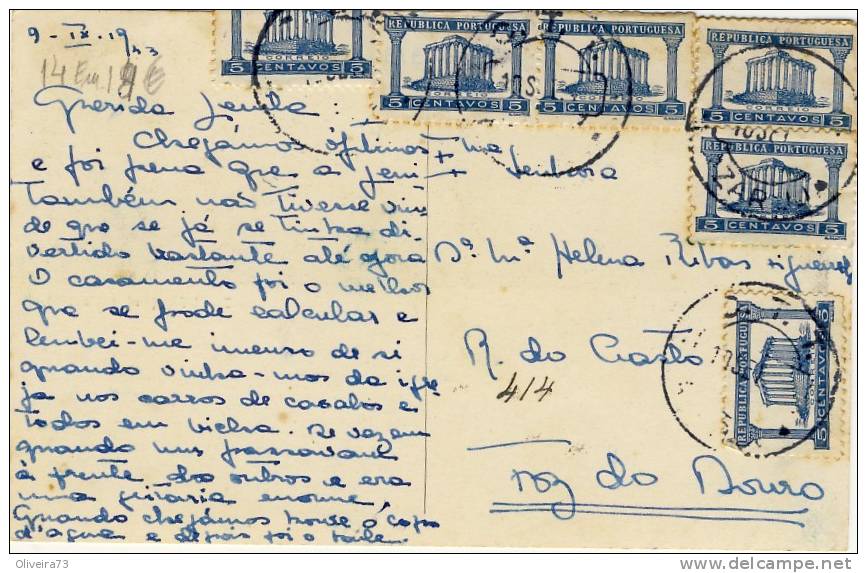 9-IX-1943
Querida Jenita
Chegámos óptimas
e foi pena que a Jeni
também não tivesse vin-
do que se já se tinha di-
vertido bastante até agora
O casamento foi o melhor
que se pode calcular e
lembei-me imenso de si
quando vinha-mos da igre-
ja nos carros de cavalos e
todos em bicha. De vez em
quando uns passavam
á frente dos outros e era
uma gritaria enorme.
Quando chegámos houve o copo
d'agua e depois foi o baile.
Ilma Senhora
D. Ma Helena Ribas
R. do Castro
414
Foz do Douro
REPUBLICA PORTUGUESA
CORREIO
5 CENTAVOS 5
REPUBLICA PORTUGUESA
5 CENTAVOS 5
REPUBLICA PORTUGUESA
CORREIO
5 CENTAVOS 5
REPUBLICA PORTUGUESA
5 CENTAVOS 5
REPUBLICA PORTUGUESA
5 CENTAVOS 5
CORREIO
5 CENTAVOS 5
Oliveira73
delcampe.net